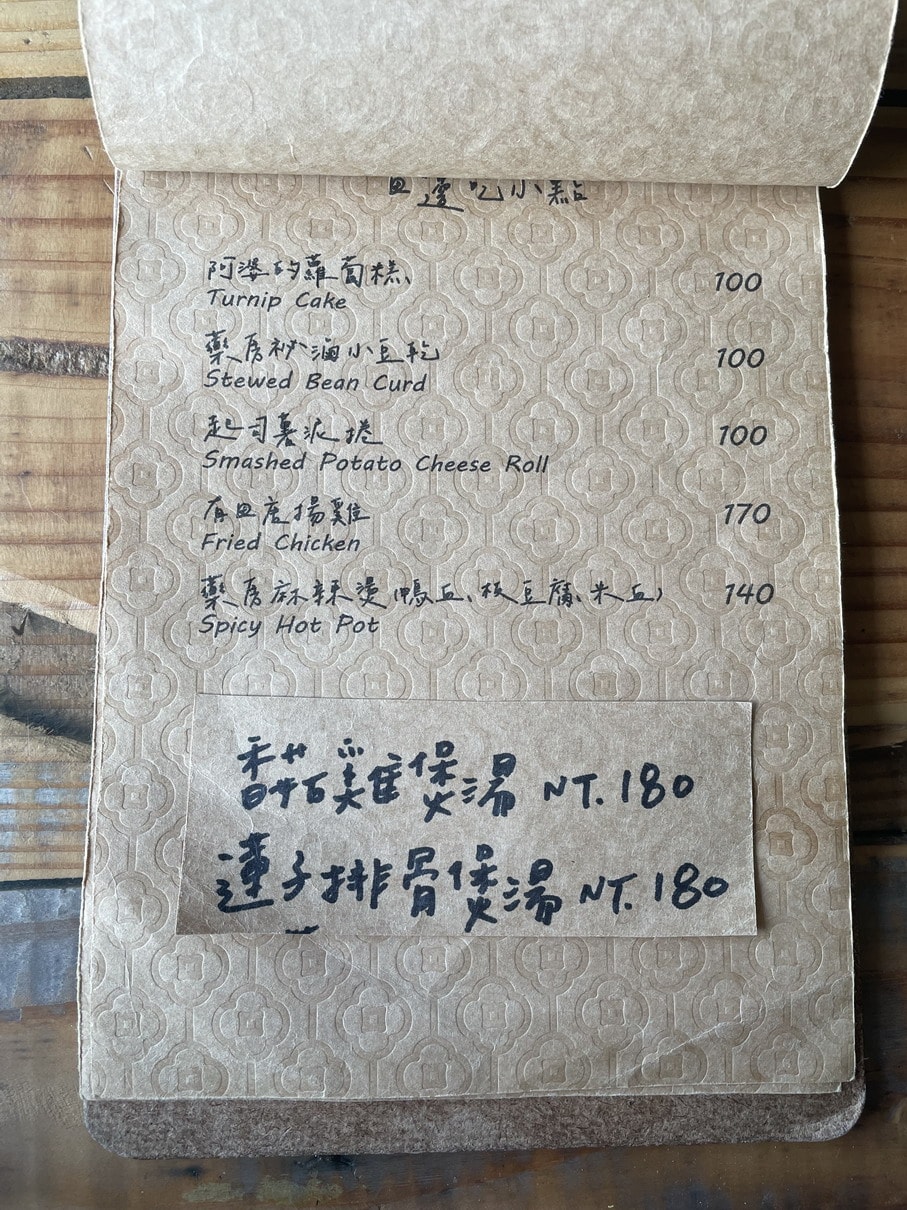 皿邊吃小點
阿婆的蘿蔔糕 100
Turnip Cake
藥房祕滷小豆乾 100
Stewed Bean Curd
起司薯派捲 100
Smashed Potato Cheese Roll
有皿唐揚雞 170
Fried Chicken
藥房麻辣燙(鴨血、板豆腐、米血) 140
Spicy Hot Pot
香菇雞煲湯 NT.180
蓮子排骨煲湯 NT.180